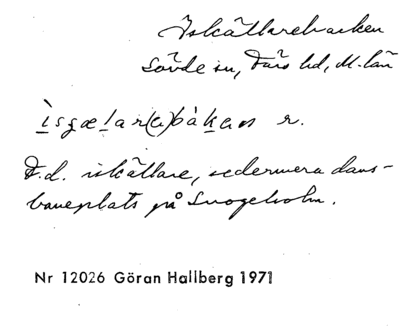 Iskällarebacken
Sövde sn, Färs hd, M. län
ìsʒælar(ə)bàkan r.
F.d. iskällare, sedermera dans-
baneplats på Snogeholm.
Nr 12026 Göran Hallberg 1971